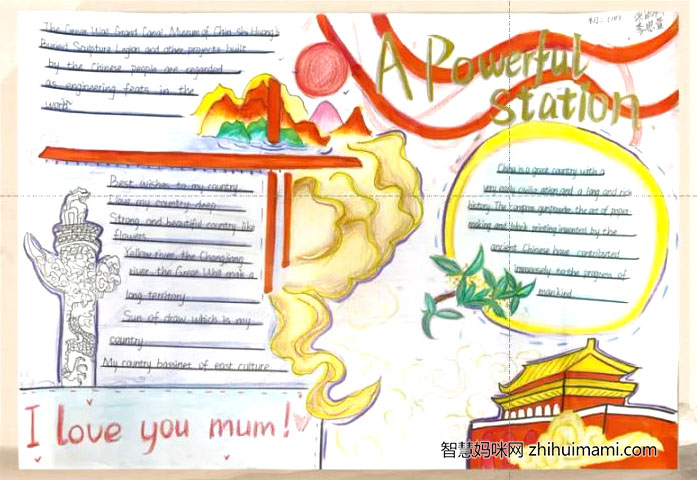 The Great Wall, Grand Canal, Museum of Chin-shi Huang's
Buried Sculpture Legion and other projects built
by the Chinese people are regarded
as engineering feats in the
world
A Powerful
station
Best wishes to my country
I love my country deep
Strong and beautiful country like
flowers
Yellow river, the Changjiang
river, the Great Wall make
long territory
Sun of draw which is my
country
My country bassinet of east culture
China is a great country with a
very early civilization and a long and rich
history. The compass, gunpowder, the art of paper
making and printing invented by the
ancient Chinese have contributed
immensely to the progress of
mankind
I love you mum!
智慧妈咪网 zhihuimami.com